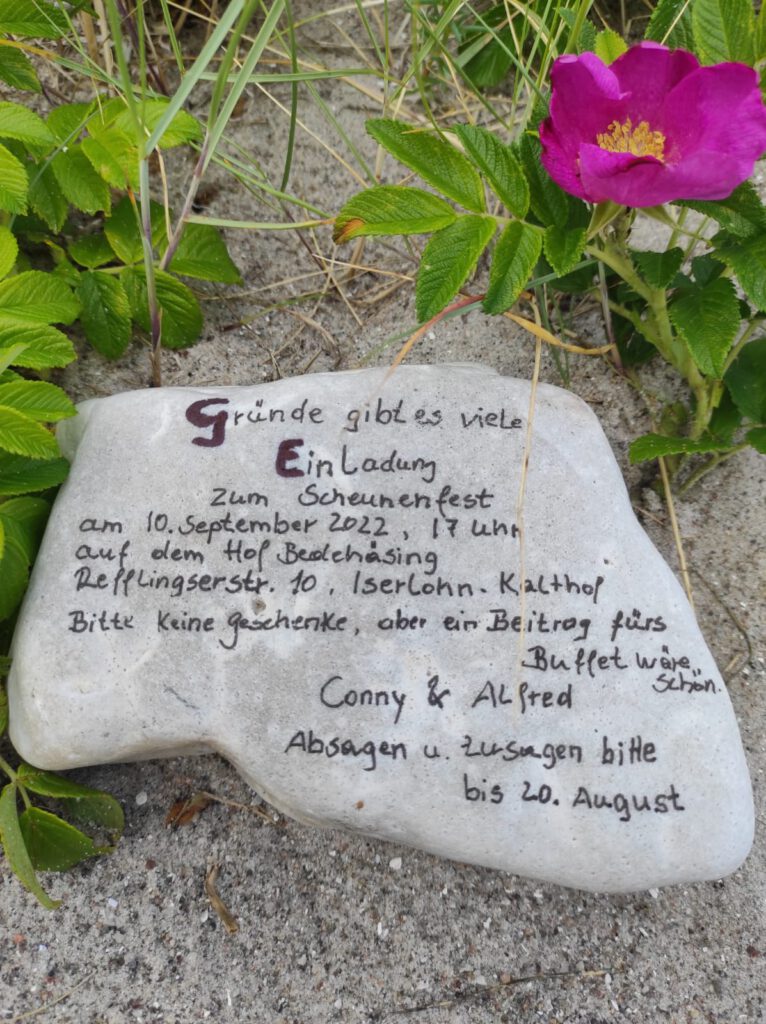 Gründe gibt es viele
Einladung
zum Scheunenfest
am 10. September 2022, 17 Uhr
auf dem Hof Bedehäsing
Refflingserstr. 10, Iserlohn-Kalthof
Bitte keine Geschenke, aber ein Beitrag fürs
Buffet wäre
schön.
Conny & Alfred
Absagen u. Zusagen bitte
bis 20. August